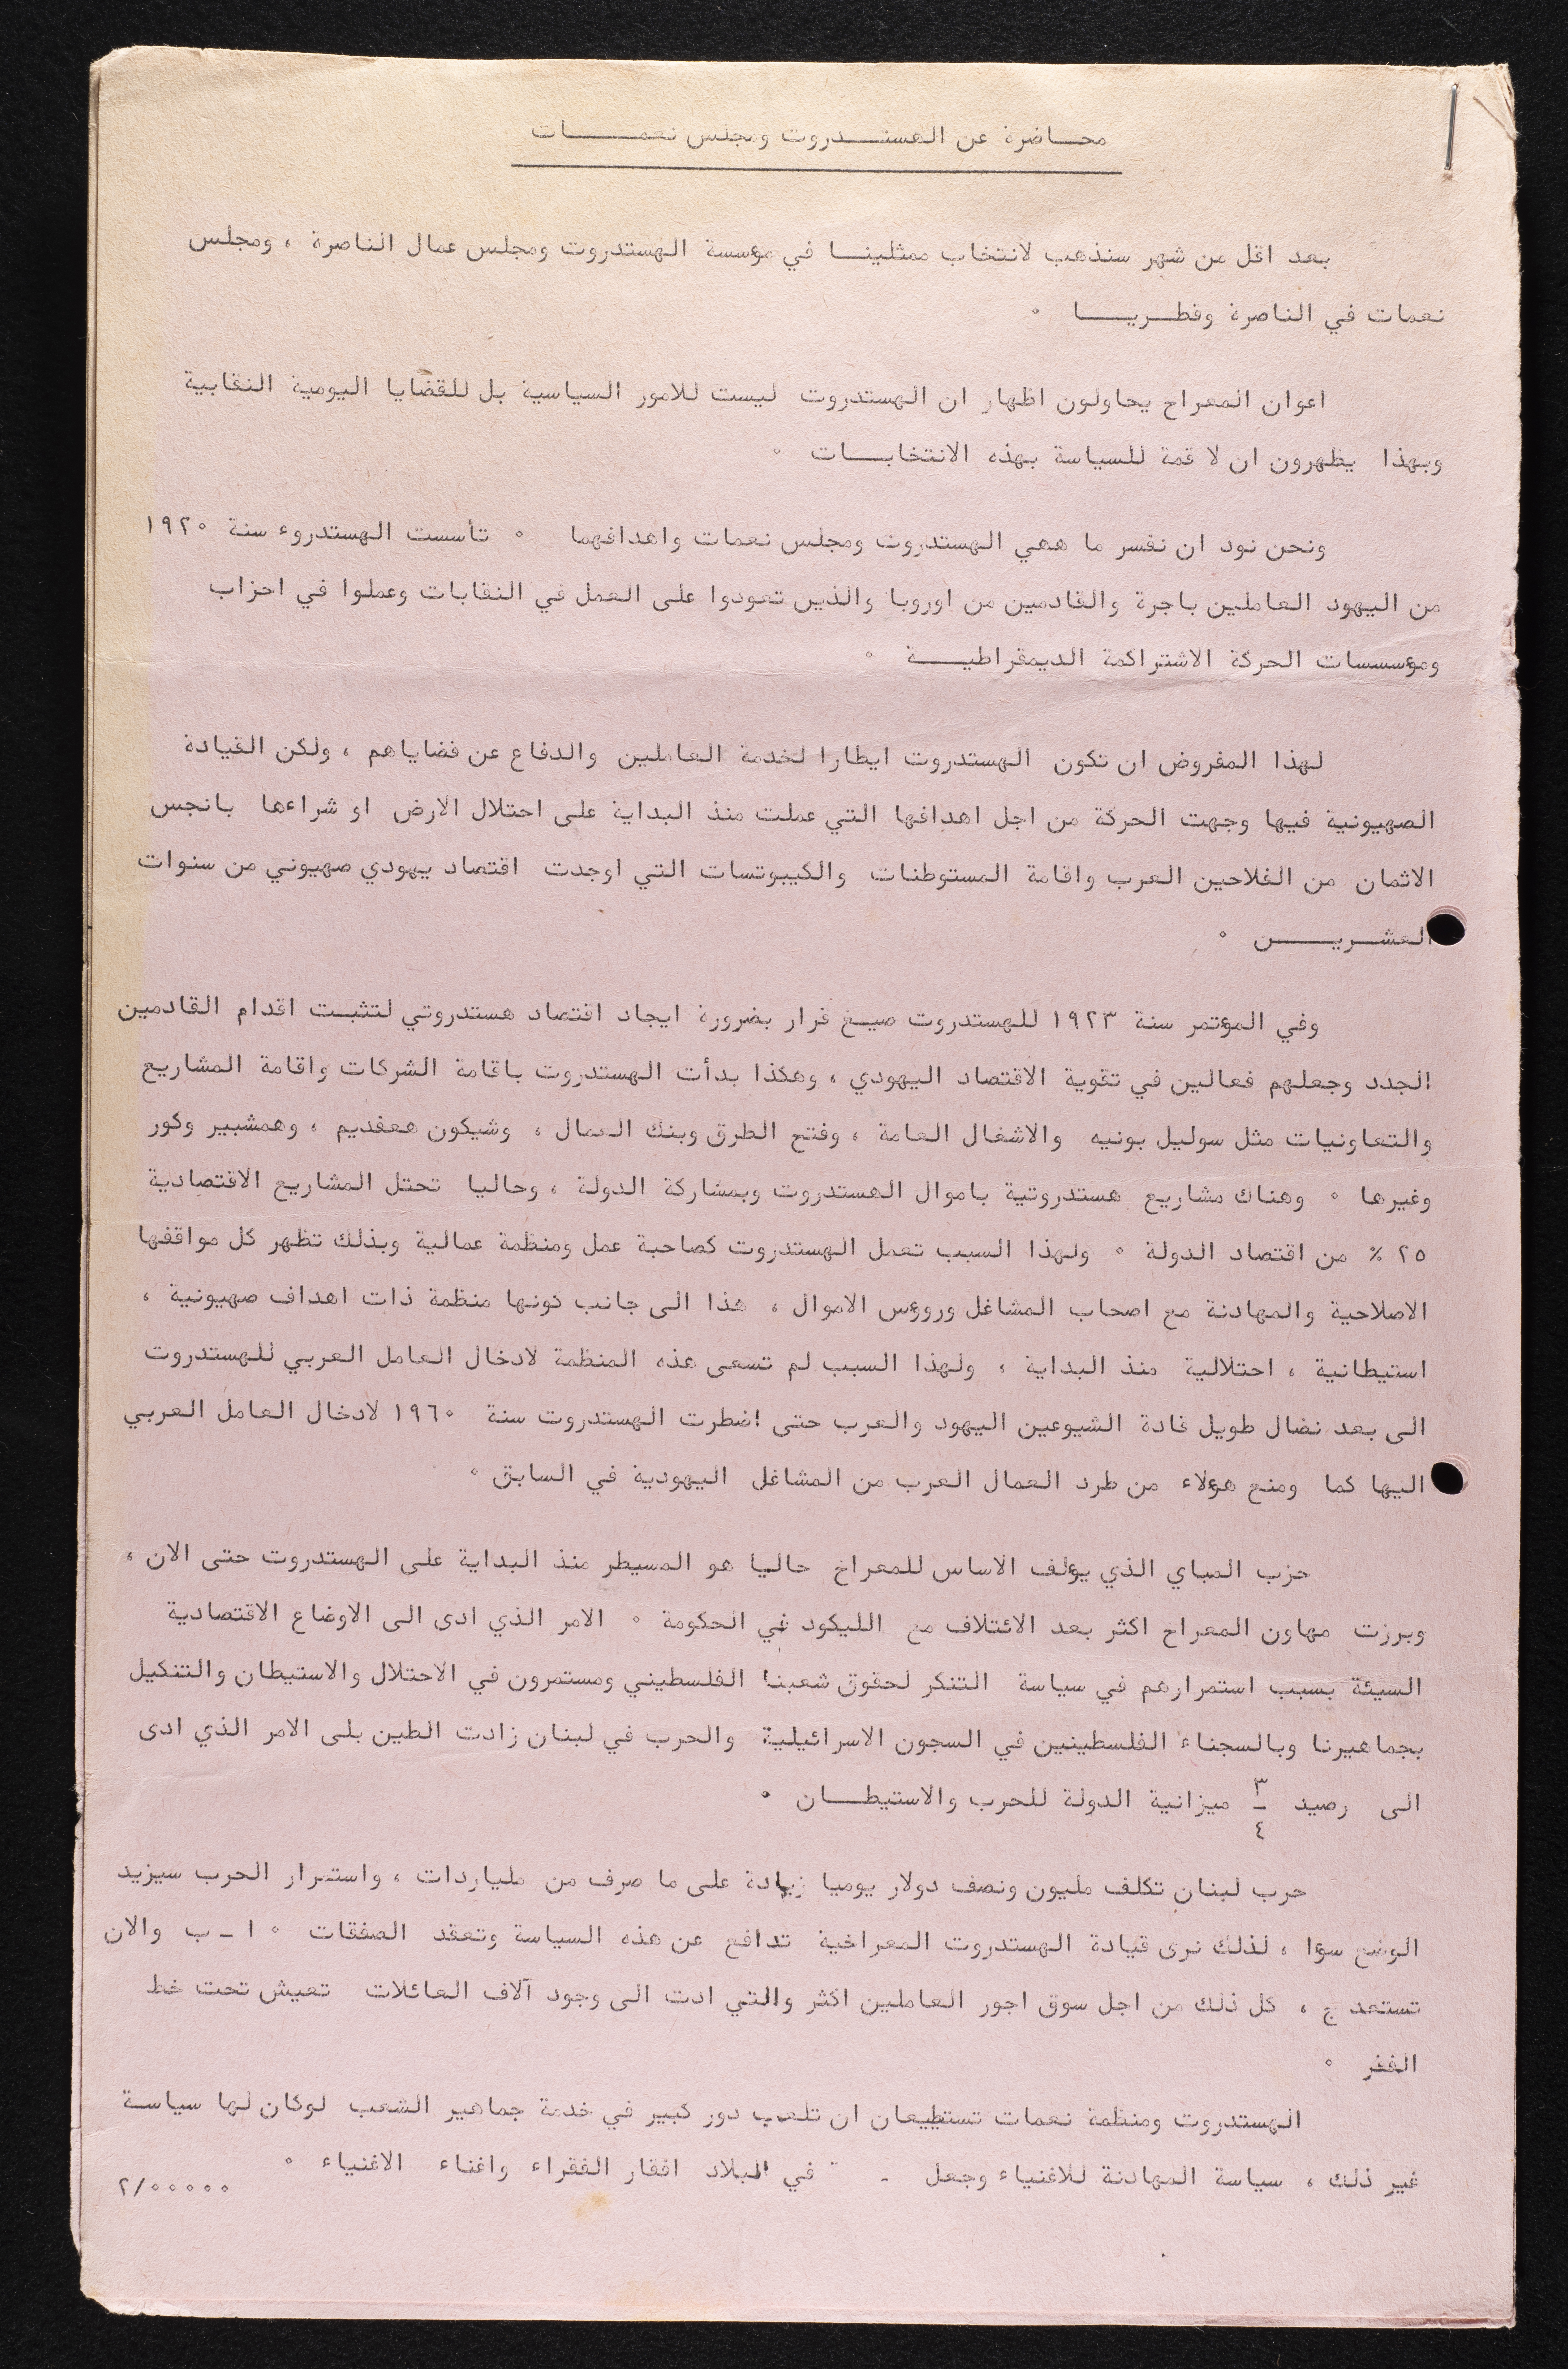 محاضرة عن الهستدروت ومجلس نعمات
بعد اقل من شهر سنذهب لانتخاب ممثلينا في موءسسة الهستدروت ومجلس عمال الناصرة ، ومجلس
نعمات في الناصرة وقطريا ٠
اعوان المعراخ يحاولون اظهار ان الهستدروت ليست للامور السياسية بل للقضايا اليومية النقابية
وبهذا يظهرون ان لا قمة للسياسة بهذه الانتخابات ٠
ونحن نود ان نفسر ما ههي الهستدروت ومجلس نعمات واهدافهما ٠ تأسست الهستدروء سنة ١٩٢٠
من اليهود العاملين باجرة والقادمين من اوروبا والذين تعودوا على العمل في النقابات وعملوا في احزاب
وموءسسسات الحركة الاشتراكمة الديمقراطية ٠
لهذا المفروض ان تكون الهستدروت ايطارا لخدمة العاملين والدفاع عن قضاياهم ، ولكن القيادة
الصهيونية فيها وجهت الحركة من اجل اهدافها التي عملت منذ البداية على احتلال الارض او شراءها بانجس
الاثمان من الفلاحين العرب واقامة المستوطنات والكيبوتسات التي اوجدت اقتصاد يهودي صهيوني من سنوات
العشرين ٠
وفي الموءتمر سنة ١٩٢٣ للهستدروت صيغ قرار بضرورة ايجاد اقتصاد هستدروتي لتثبت اقدام القادمين
الجدد وجعلهم فعالين في تقوية الاقتصاد اليهودي ، وهكذا بدأت الهستدروت باقامة الشركات واقامة المشاريع
والتعاونيات مثل سوليل بونيه والاشغال العامة ، وفتح الطرق وبنك العمال ، وشيكون هعفديم ، وهمشبير وكور
وغيرها ٠ وهناك مشاريع هستدروتية باموال الهستدروت وبمشاركة الدولة ، وحاليا تحتل المشاريع الاقتصادية
٢٥ ٪ من اقتصاد الدولة ٠ ولهذا السبب تعمل الهستدروت كصاحبة عمل ومنظمة عمالية وبذلك تظهر كل مواقفها
الاصلاحية والمهادنة مع اصحاب المشاغل وروءس الاموال ، هذا الى جانب كونها منظمة ذات اهداف صهيونية ،
استيطانية ، احتلالية منذ البداية ، ولهذا السبب لم تسعى هذه المنظمة لادخال العامل العربي للهستدروت
الى بعد نضال طويل قادة الشيوعين اليهود والعرب حتى اضطرت الهستدروت سنة ١٩٦٠ لادخال العامل العربي
اليها كما ومنع هوءلاء من طرد العمال العرب من المشاغل اليهودية في السابق ٠
حزب المباي الذي يوءلف الاساس للمعراخ حاليا هو المسيطر منذ البداية على الهستدروت حتى الان ،
وبرزت مهاون المعراخ اكثر بعد الائتلاف مع الليكود في الحكومة ٠ الامر الذي ادى الى الاوضاع الاقتصادية
السيئة بسبب استمرارهم في سياسة التنكر لحقوق شعبنا الفلسطيني ومستمرون في الاحتلال والاستيطان والتنكيل
بجماهيرنا وبالسجناء الفلسطينين في السجون الاسرائيلية والحرب في لبنان زادت الطين بلى الامر الذي ادى
الى رصيد ٣/٤ ميزانية الدولة للحرب والاستيطان ٠
حرب لبنان تكلف مليون ونصف دولار يوميا زيادة على ما صرف من ملياردات ، واستمرار الحرب سيزيد
الوضع سوءا ، لذلك نرى قيادة الهستدروت المعراخية تدافع عن هذه السياسة وتعقد الصفقات ٠ ا ـ ب والان
تستعد ج ، كل ذلك من اجل سوق اجور العاملين اكثر والتي ادت الى وجود آلاف العائلات تعيش تحت خط
الفقر ٠
الهستدروت ومنظمة نعمات تستطيعان ان تلعب دور كبير في خدمة جماهير الشعب لوكان لها سياسة
غير ذلك ، سياسة المهادنة للاغنياء وجعل في البلاد افقار الفقراء واغناء الاغنياء ٠
٢/٠٠٠٠٠